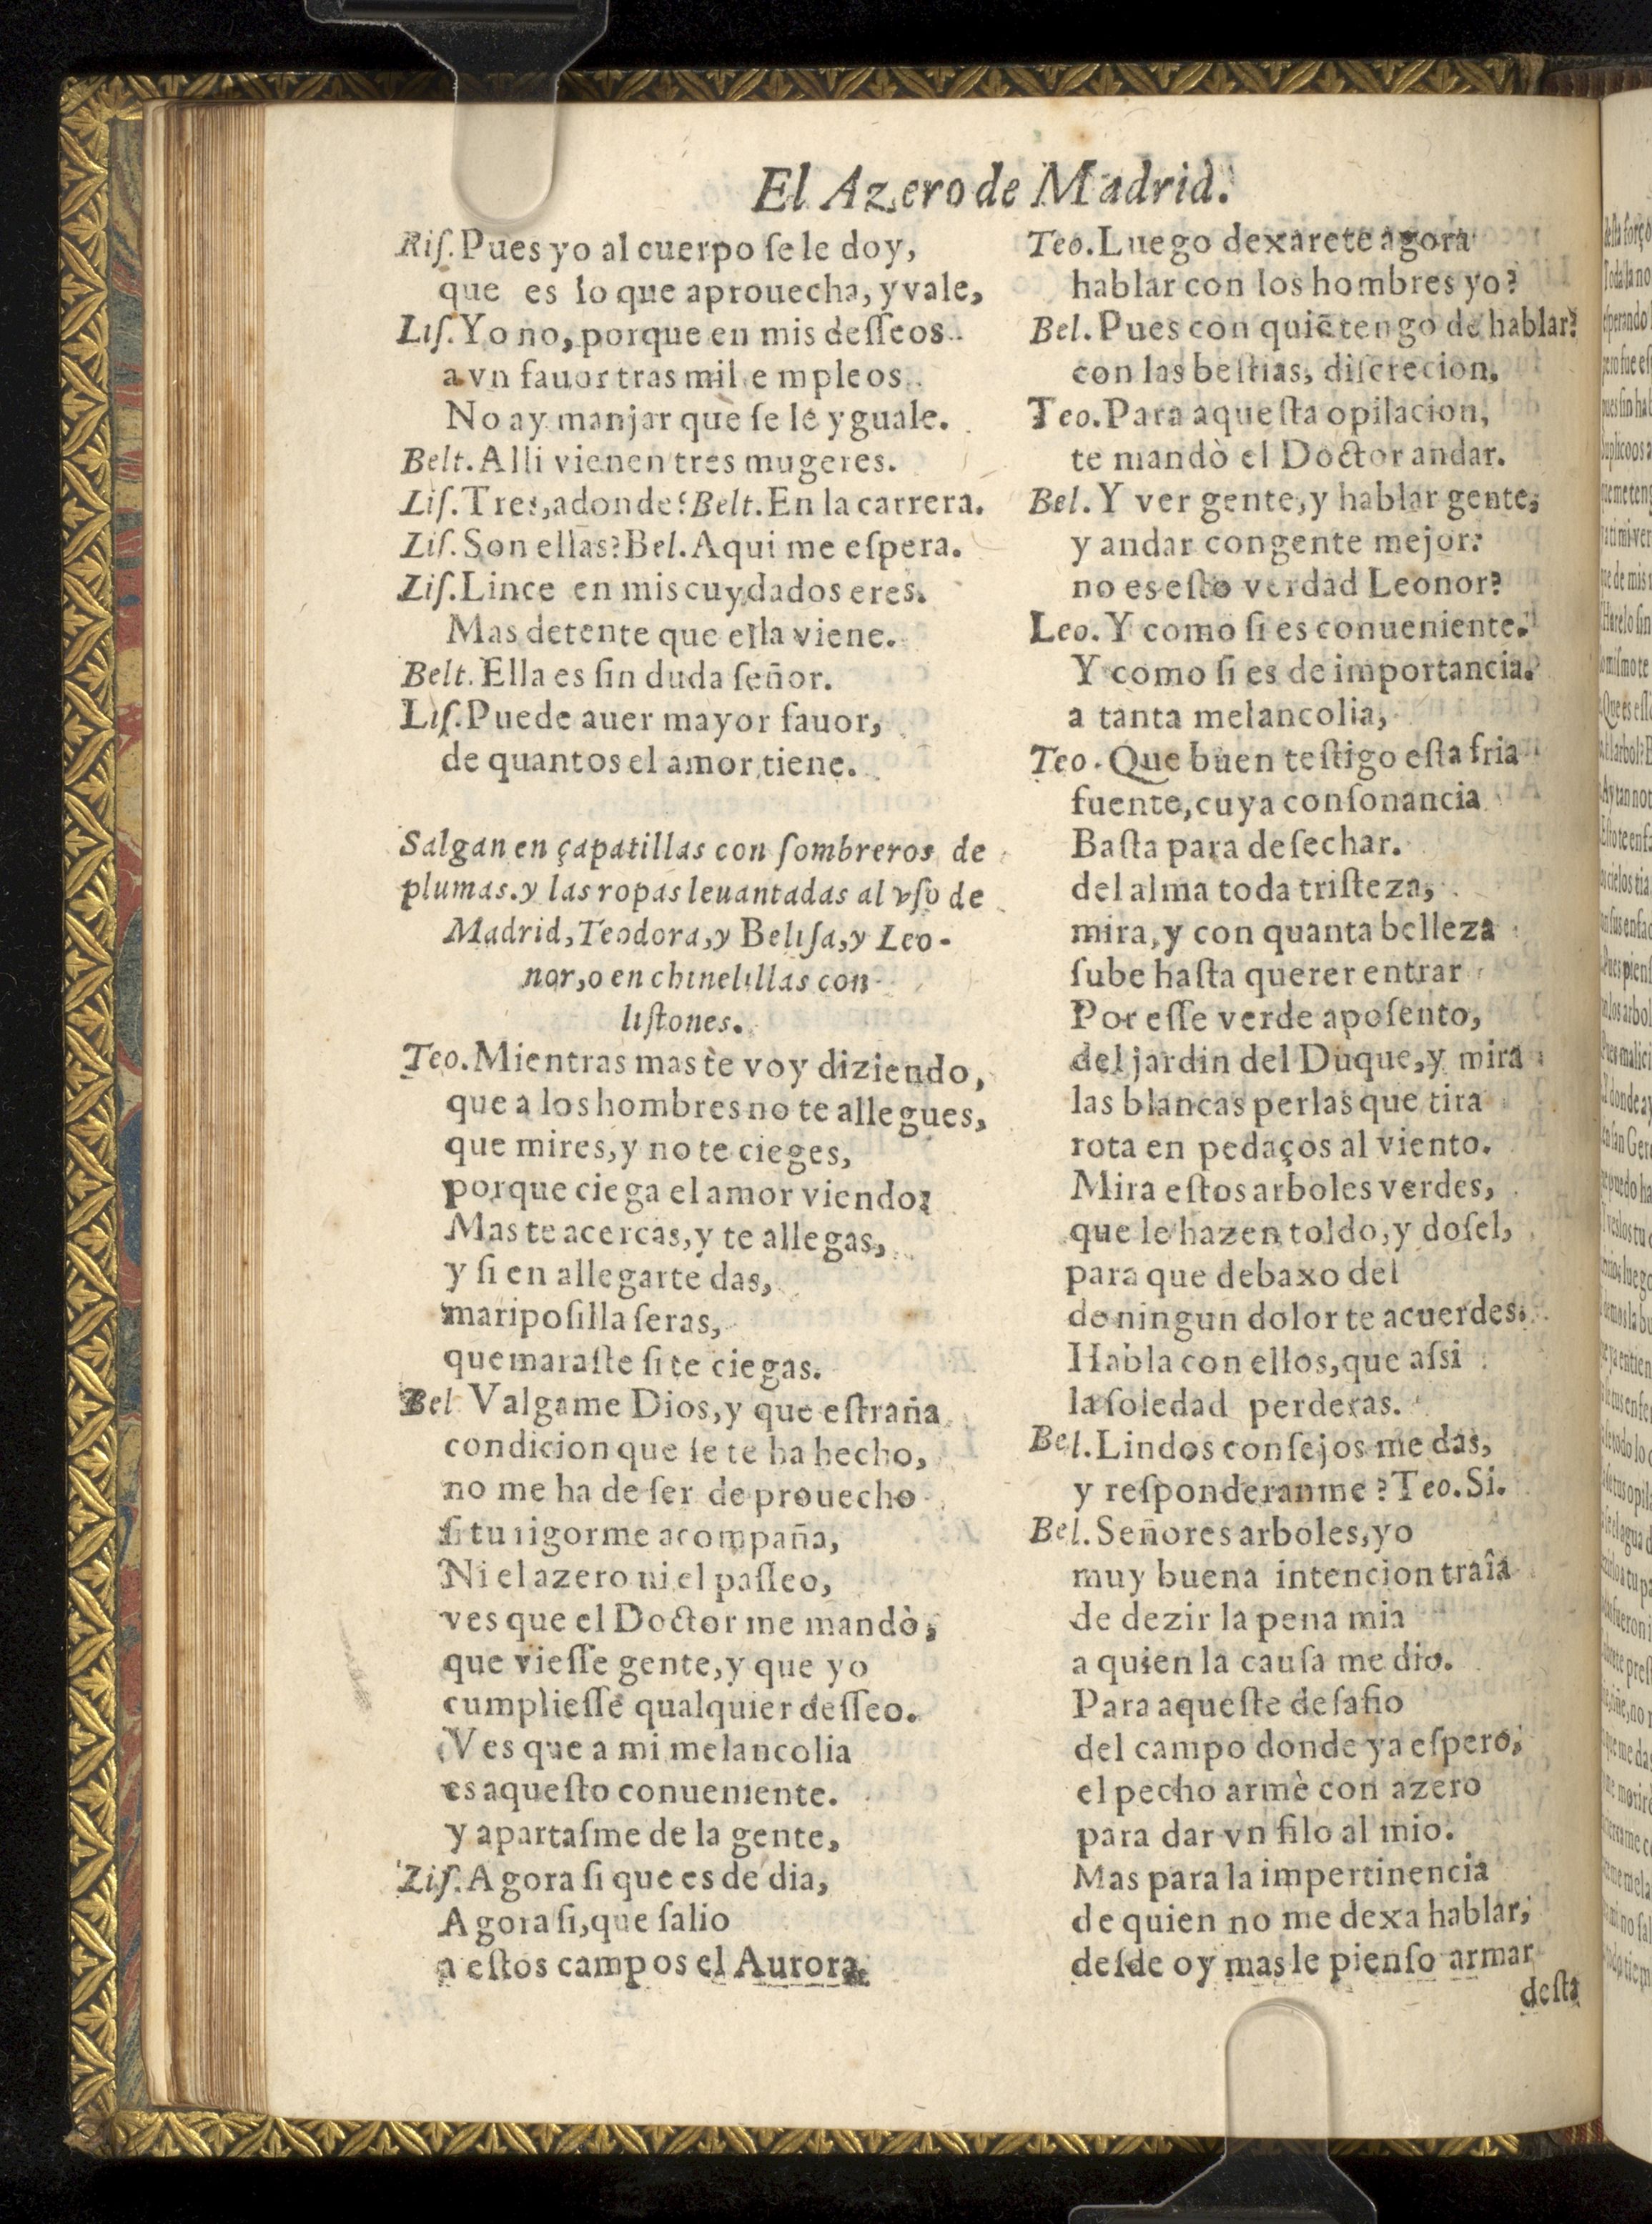 El Azero de Madrid.
Riſ. Pues yo al cuerpo ſe le doy,
que es lo que aprouecha, y vale,
Liſ. Yo no, porque en mis deſſeos
a vn fauor tras mil empleos
No ay manjar que ſe le yguale.
Belt. Alli vienen tres mugeres.
Liſ. Tres, adonde? Belt. En la carrera.
Liſ. Son ellas? Bel. Aqui me eſpera.
Liſ. Lince en mis cuydados eres.
Mas detente que ella viene.
Belt. Ella es ſin duda ſeñor.
Liſ. Puede auer mayor fauor,
de quantos el amor tiene.
Salgan en çapatillas con ſombreros de
plumas. y las ropas leuantadas al vſo de
Madrid, Teodora, y Beliſa, y Leo-
nor, o en chinelillas con
liſtones.
Teo. Mientras mas tè voy diziendo,
que a los hombres no te allegues,
que mires, y no te cieges,
porque ciega el amor viendo:
Mas te acercas, y te allegas,
y ſi en allegarte das,
maripoſilla ſeras,
quemaraſte ſi te ciegas.
Bel Valgame Dios, y que eſtraña
condicion que ſe te ha hecho,
no me ha de ſer de prouecho
ſi tu rigor me acompaña,
Ni el azero ni el paſſeo,
ves que el Doctor me mandò,
que vieſſe gente, y que yo
cumplieſſe qualquier deſſeo.
Ves que a mi melancolia
es aqueſto conueniente.
y apartaſme de la gente,
Liſ. Agora ſi que es de dia,
Agora ſi, que ſalio
a eſtos campos el Aurora.
Teo. Luego dexarete agora
hablar con los hombres yo?
Bel. Pues con quiē tengo de hablar?
con las beſtias, diſcrecion,
Teo. Para aqueſta opilacion,
te mandò el Doctor andar.
Bel. Y ver gente, y hablar gente,
y andar con gente mejor:
no es eſto verdad Leonor?
Leo. Y como ſi es conueniente.
Y como ſi es de importancia.
a tanta melancolia,
Teo. Que buen teſtigo eſta fria
fuente, cuya conſonancia
Baſta para deſechar.
del alma toda triſteza,
mira, y con quanta belleza
ſube haſta querer entrar
Por eſſe verde apoſento,
del jardin del Duque, y mira
las blancas perlas que tira
rota en pedaços al viento.
Mira eſtos arboles verdes,
que le hazen toldo, y doſel,
para que debaxo del
de ningun dolor te acuerdes.
Habla con ellos, que aſsi
la ſoledad perderas.
Bel. Lindos conſejos me das,
y reſponderanme? Teo. Si.
Bel. Señores arboles, yo
muy buena intencion traîa
de dezir la pena mia
a quien la cauſa me dio.
Para aqueſte deſafio
del campo donde ya eſpero,
el pecho armè con azero
para dar vn filo al mio.
Mas para la impertinencia
de quien no me dexa hablar,
deſde oy mas le pienſo armar
deſta